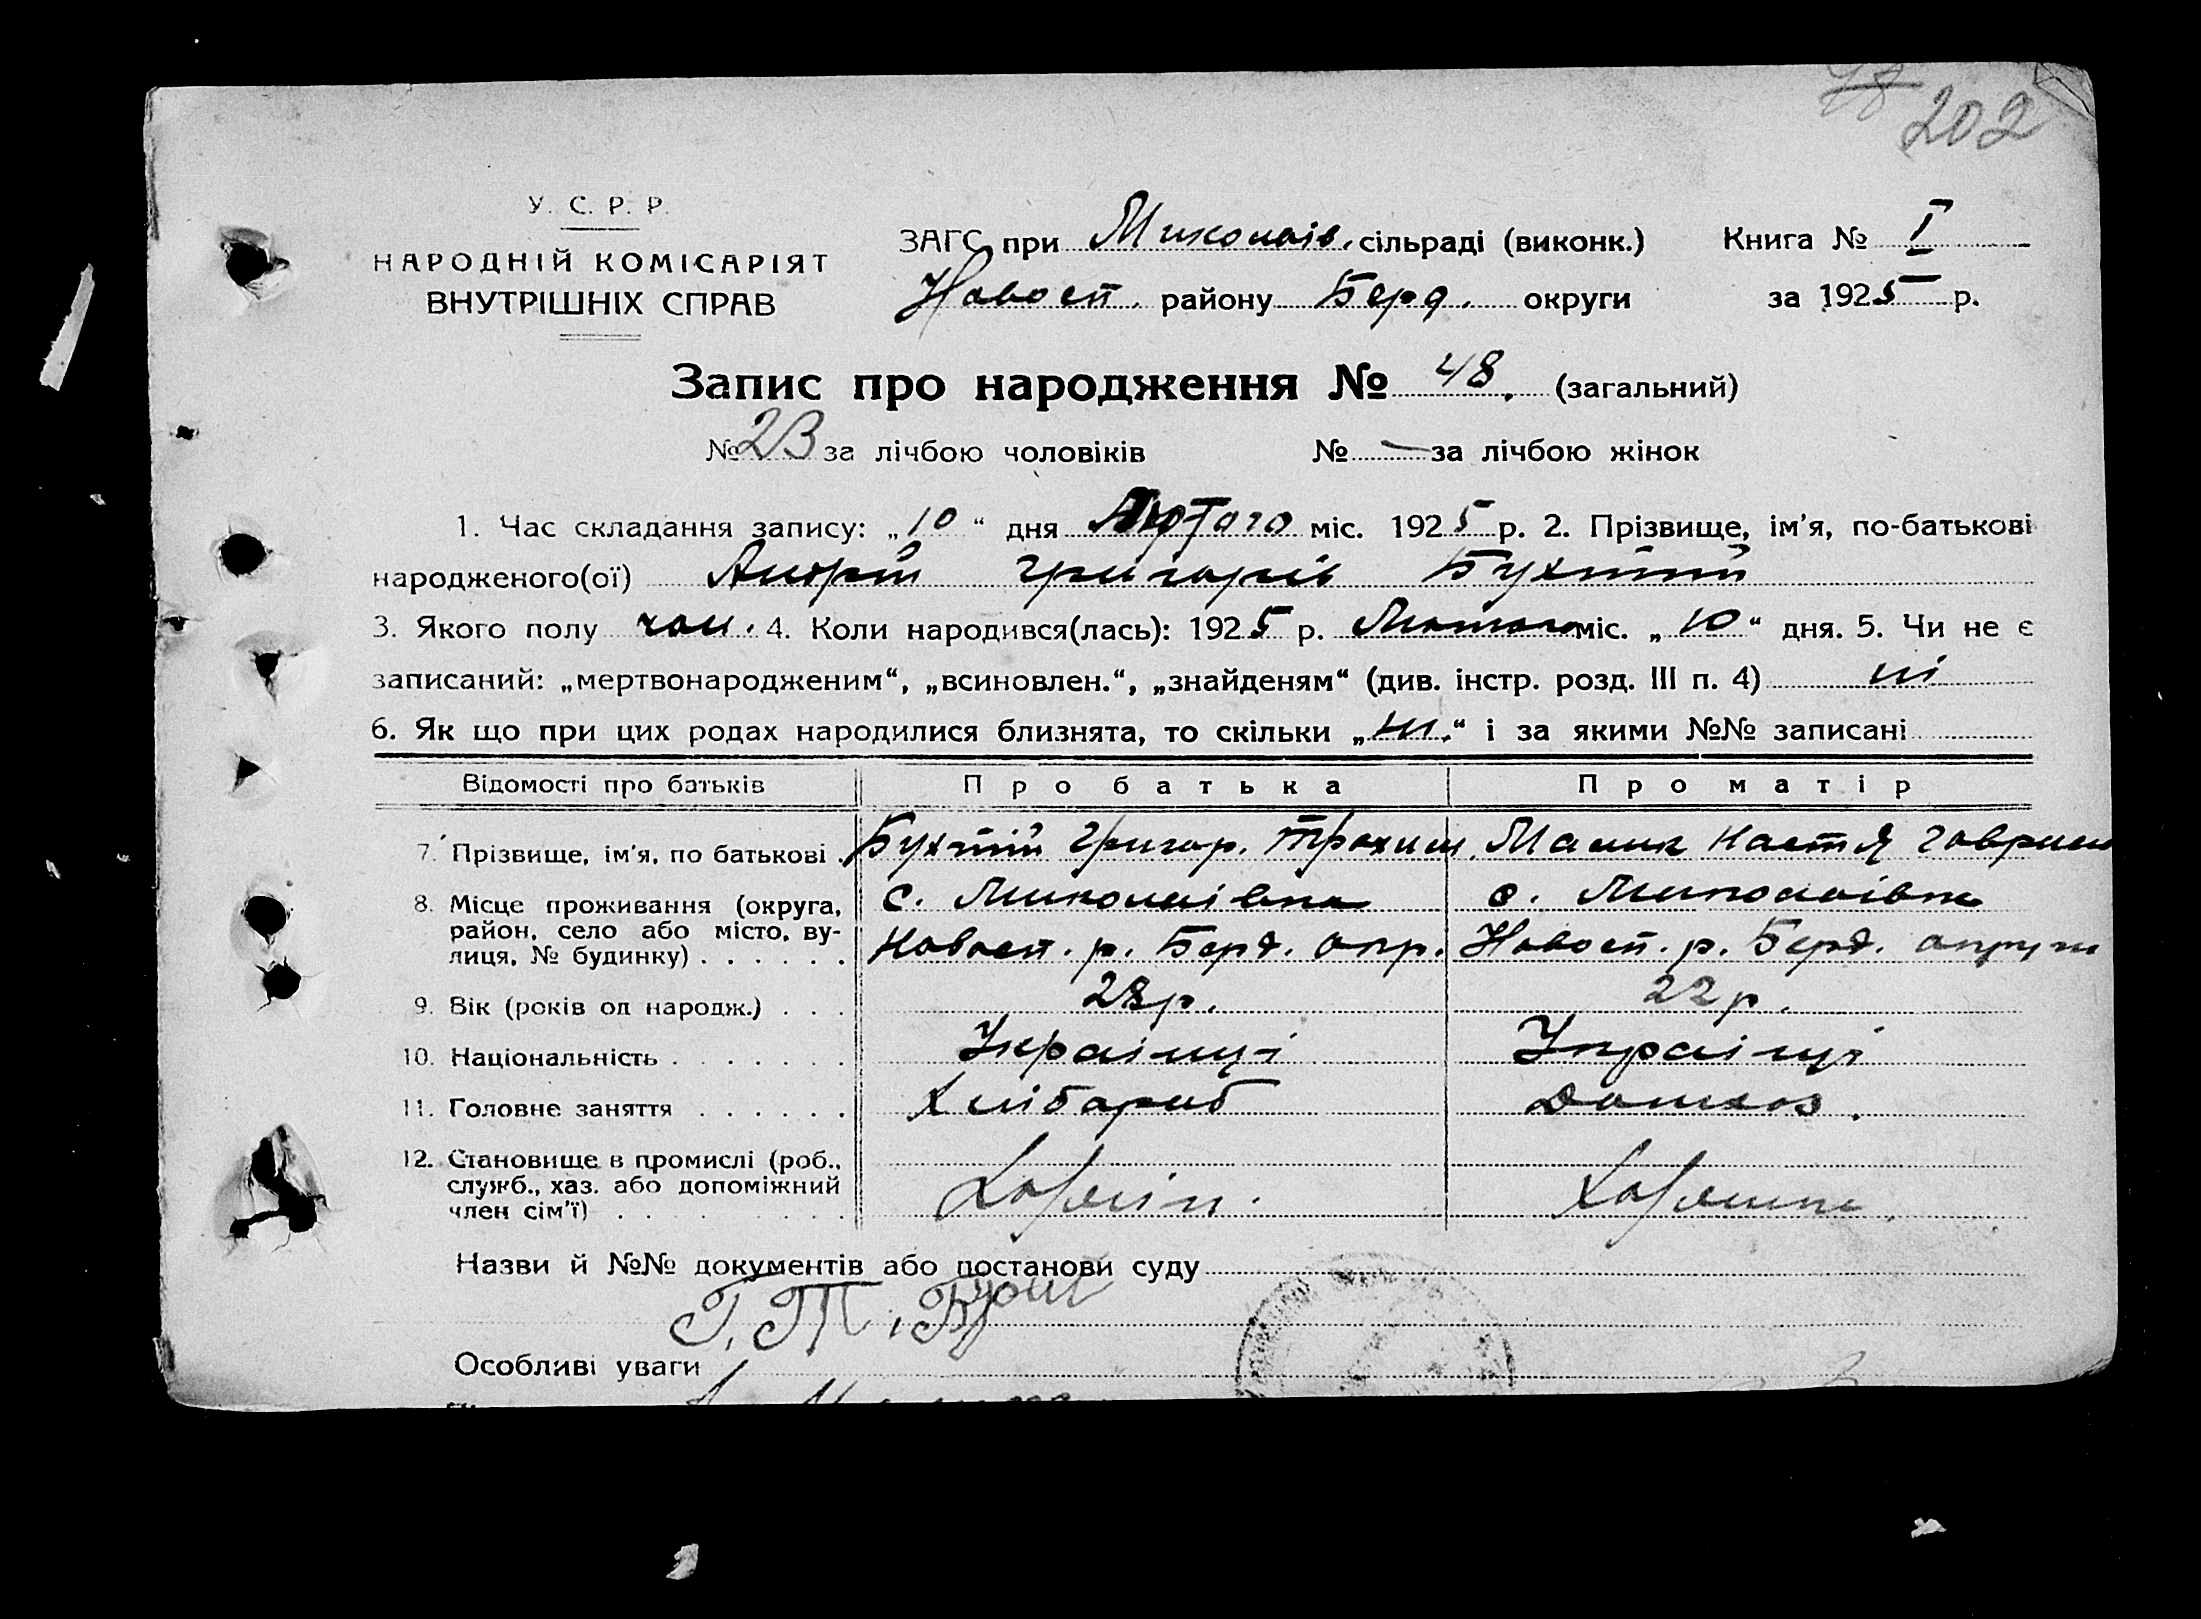 202
У. С. Р. Р.
НАРОДНІЙ КОМІСАРІЯТ
ВНУТРІШНІХ СПРАВ
ЗАГС при Миколаїв. сільраді (виконк.) Книга № I
Новосп. району Берд. округи за 1925 р.
Запис про народження № 48. (загальний)
№ 23 за лічбою чоловіків № — за лічбою жінок
1. Час складання запису: „10“ дня Лютого міс. 1925 р. 2. Прізвище, ім'я, по-батькові
народженого(ої) Андрій Григорів Бухтій
3. Якого полу чол. 4. Коли народився(лась): 1925 р. Лютого міс. „10“ дня. 5. Чи не є
записаний: „мертвонародженим“, „всиновлен.“, „знайденям“ (див. інстр. розд. III п. 4) ні
6. Як що при цих родах народилися близнята, то скільки „ні.“ і за якими №№ записані
Відомості про батьків Про батька Про матір
7. Прізвище, ім'я, по батькові . Бухтій Григор. Трохим. Малик Настя Гаврил
8. Місце проживання (округа, район, село або місто, вулиця, № будинку) . . . . . . с. Миколаівка с. Миколаівка
Новосп. р. Берд. окр. Новосп. р. Берд. округи
9. Вік (років од народж.) . . . 28 р. 22 р.
10. Національність . . . . . . . Украінці Украінці
11. Головне заняття . . . . . . Хлібороб Домхоз.
12. Становище в промислі (роб., служб., хаз. або допоміжний член сім'ї) . . . . . . . .
Назви й №№ документів або постанови суду
Г. Т.
Особливі уваги